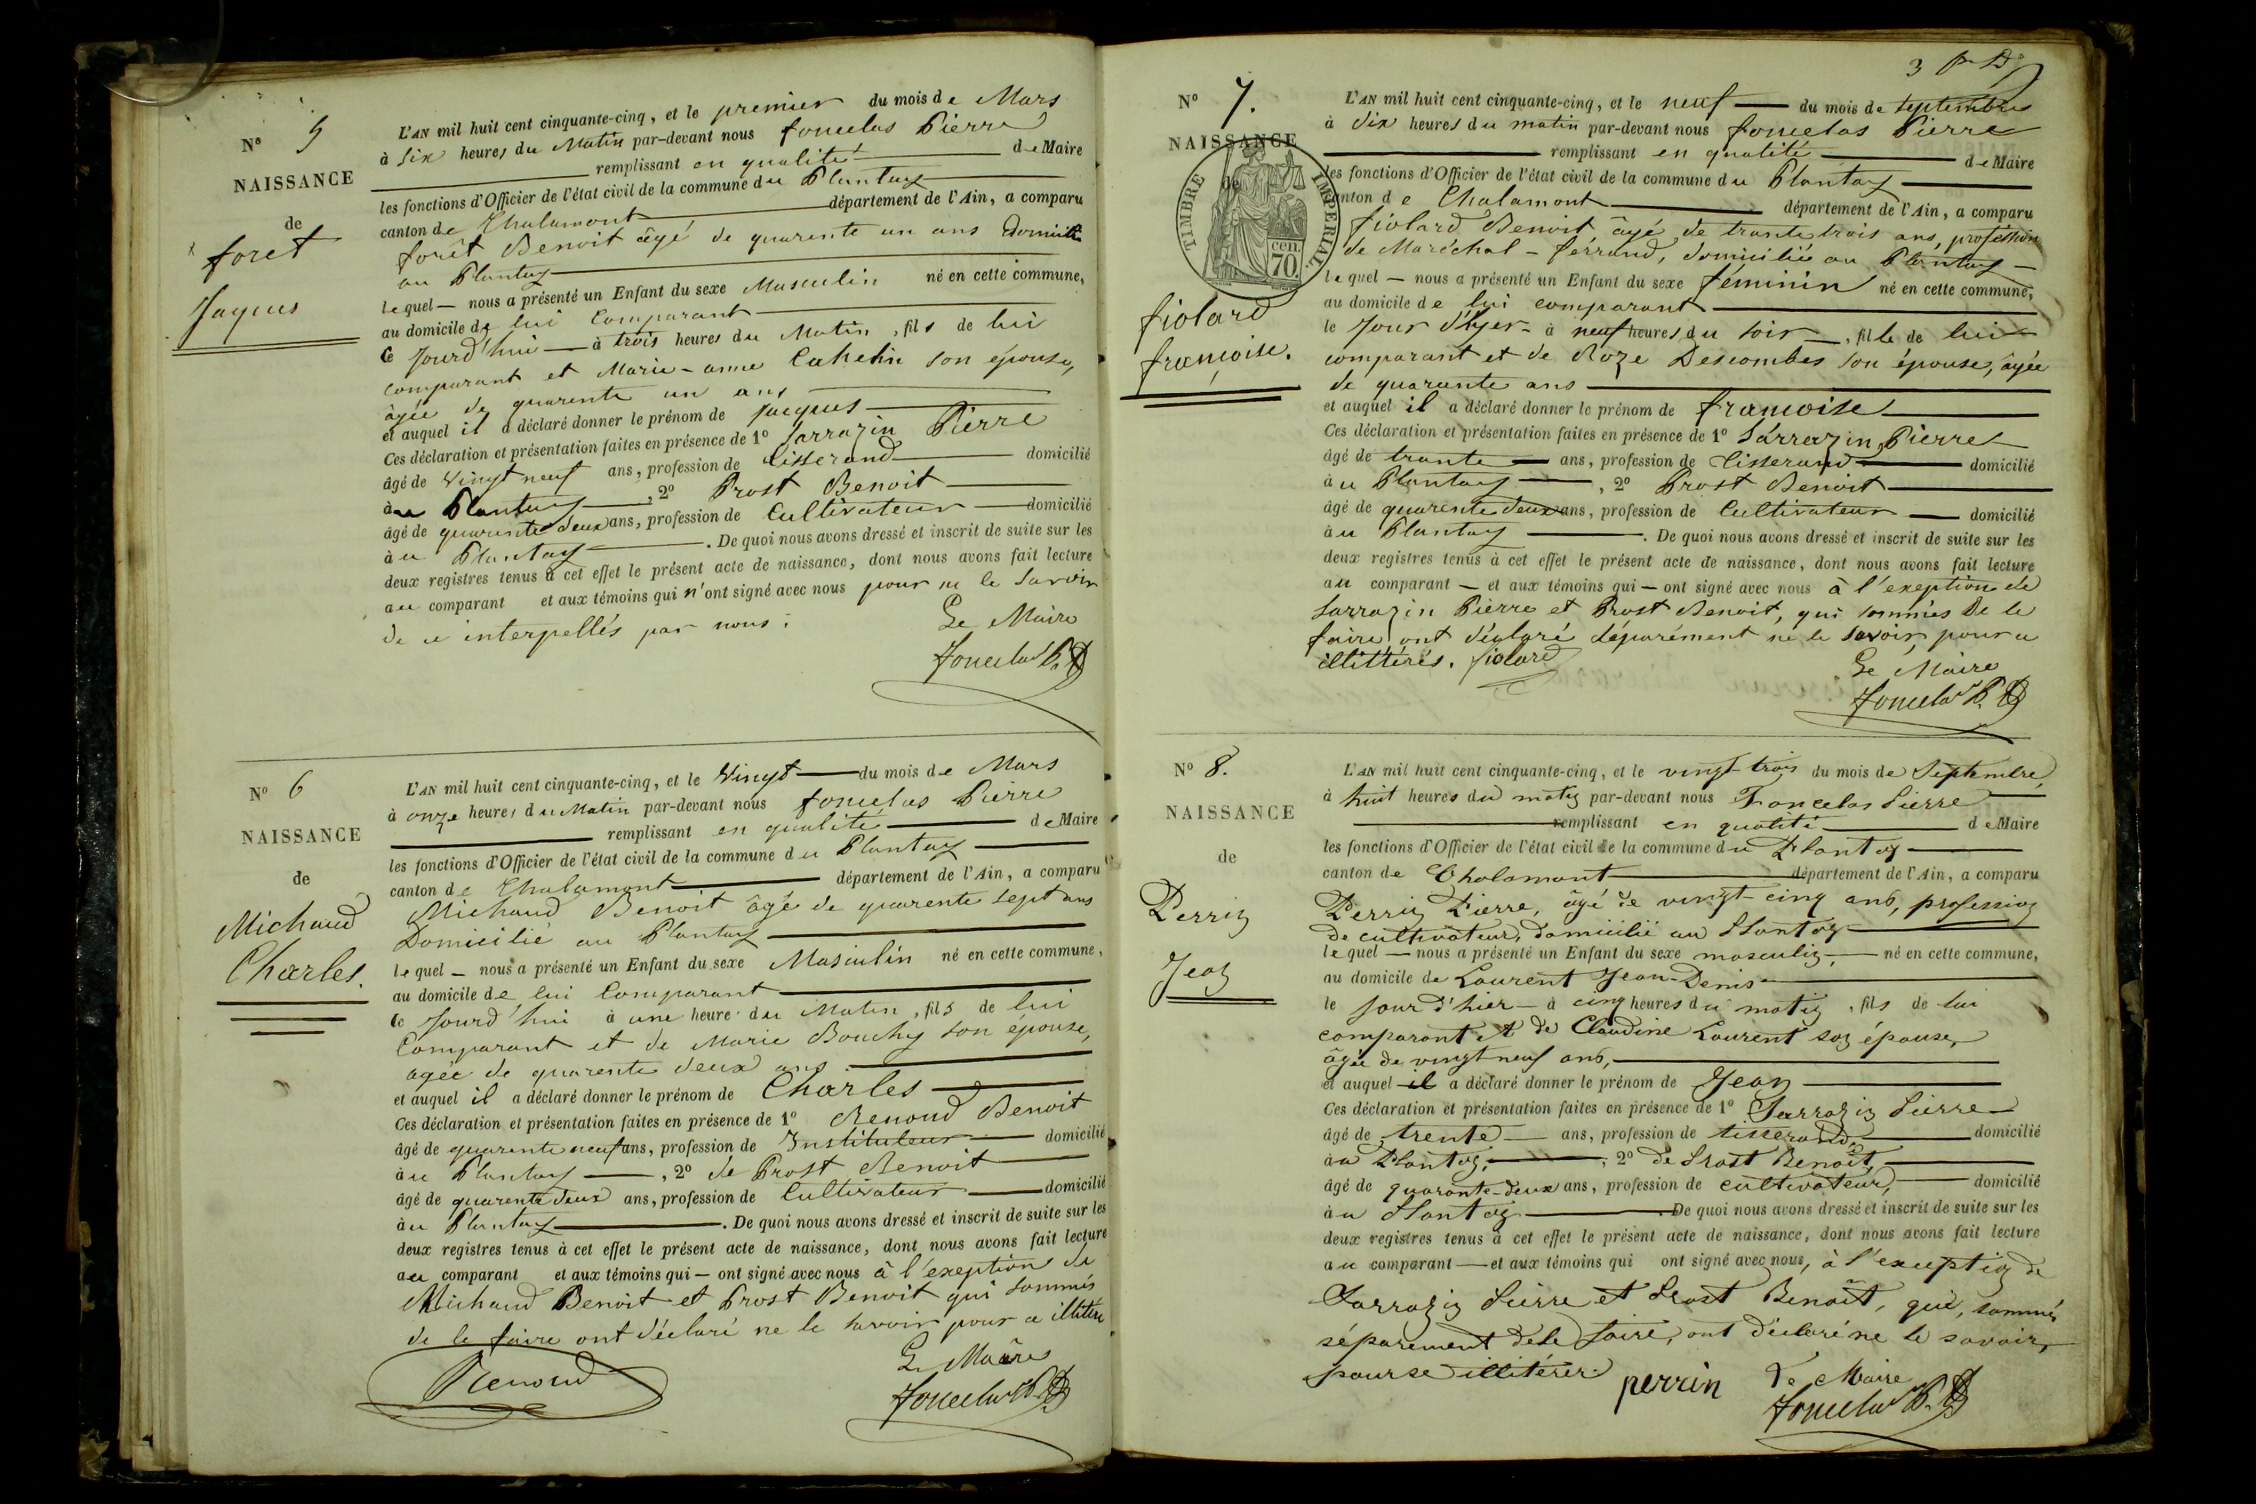 N° 5
NAISSANCE
de
foret
Jaques
L'AN mil huit cent cinquante-cinq, et le premier du mois de Mars
à six heures du Matin par-devant nous foncelas Pierre
remplissant en qualité de Maire
les fonctions d'Officier de l'état civil de la commune du Plantay
canton de Chalamont département de l'Ain, a comparu
forêt Benoit âgé de quarente un ans Domicilié
au Plantay
lequel nous a présenté un Enfant du sexe Masculin né en cette commune,
au domicile de lui Comparant
Ce Jourd'hui à trois heures du Matin, fils de lui
comparant et Marie-anne Cathelin son épouse,
âgée de quarente un ans
et auquel il a déclaré donner le prénom de Jacques
Ces déclaration et présentation faites en présence de 1° Sarrazin Pierre
âgé de vingt neuf ans, profession de tisserand domicilié
au Plantay, 2° Prost Benoit
âgé de quarente deux ans, profession de Cultivateur domicilié
au Plantay. De quoi nous avons dressé et inscrit de suite sur les
deux registres tenus à cet effet le présent acte de naissance, dont nous avons fait lecture
au comparant et aux témoins qui n'ont signé avec nous pour ne le savoir
de ce interpellés par nous.
Le Maire
foncelas P.
N° 6
NAISSANCE
de
Michaud
Charles.
L'AN mil huit cent cinquante-cinq, et le Vingt du mois de Mars
à onze heures du Matin par-devant nous foncelas Pierre
remplissant en qualité de Maire
les fonctions d'Officier de l'état civil de la commune du Plantay
canton de Chalamont département de l'Ain, a comparu
Michaud Benoit âgé de quarente sept ans
Domicilié au Plantay
lequel nous a présenté un Enfant du sexe Masculin né en cette commune,
au domicile de lui Comparant
Ce Jourd'hui à une heure du Matin, fils de lui
Comparant et de Marie Bouchy son epouse,
agée de quarente deux ans
et auquel il a déclaré donner le prénom de Charles
Ces déclaration et présentation faites en présence de 1° Renoud Benoit
âgé de quarente neuf ans, profession de Instituteur domicilié
au Plantay, 2° de Prost Benoit
âgé de quarente deux ans, profession de Cultivateur domicilié
au Plantay. De quoi nous avons dressé et inscrit de suite sur les
deux registres tenus à cet effet le présent acte de naissance, dont nous avons fait lecture
au comparant et aux témoins qui ont signé avec nous à l'exeption de
Michaud Benoit et Prost Benoit qui sommés
de le faire ont déclaré ne le savoir pour ce illitéré
Renoud
Le Maire
foncelas P.
3
N° 7.
NAISSANCE
de
TIMBRE IMPERIAL
70 cen.
fiolard
françoise.
L'AN mil huit cent cinquante-cinq, et le neuf du mois de septembre
à dix heures du matin par-devant nous foncelas Pierre
remplissant en qualité de Maire
les fonctions d'Officier de l'état civil de la commune du Plantay
canton de Chalamont département de l'Ain, a comparu
fiolard Benoit âgé de trante trois ans, proféssion
de Maréchal-férrand, domicilié au Plantay
lequel nous a présenté un Enfant du sexe féminin né en cette commune,
au domicile de lui comparant
le Jour d'hyer à neuf heures du soir, fille de lui
comparant et de Roze Descombes son épouse, âgée
de quarante ans
et auquel il a déclaré donner le prénom de françoise
Ces déclaration et présentation faites en présence de 1° Sarrazin Pierre
âgé de trante ans, profession de tisserand domicilié
au Plantay, 2° Prost Benoit
âgé de quarente deux ans, profession de Cultivateur domicilié
au Plantay. De quoi nous avons dressé et inscrit de suite sur les
deux registres tenus à cet effet le présent acte de naissance, dont nous avons fait lecture
au comparant et aux témoins qui ont signé avec nous à l'exeption de
Sarrazin Pierre et Prost Benoit, qui sommés de le
faire ont déclaré séparément ne le savoir pour ce
illittérés. fiolard
Le Maire
foncelas P.
N° 8.
NAISSANCE
de
Perrin
Jean
L'AN mil huit cent cinquante-cinq, et le vingt-trois du mois de Septembre,
à huit heures du matin par-devant nous Foncelas Pierre
remplissant en qualité de Maire
les fonctions d'Officier de l'état civil de la commune du Plantay
canton de Chalamont département de l'Ain, a comparu
Perrin Pierre, âgé de vingt-cinq ans, profession
de cultivateur, domicilié au Plantay
lequel nous a présenté un Enfant du sexe masculin, né en cette commune,
au domicile de Laurent Jean-Denis
le jour d'hier à cinq heures du matin, fils de lui
comparant et de Claudine Laurent son épouse,
âgée de vingt neuf ans,
et auquel il a déclaré donner le prénom de Jean
Ces déclaration et présentation faites en présence de 1° Sarrazin Pierre
âgé de trente ans, profession de tisserand, domicilié
au Plantay, 2° de Prost Benoît,
âgé de quarante-deux ans, profession de cultivateur, domicilié
au Plantay. De quoi nous avons dressé et inscrit de suite sur les
deux registres tenus à cet effet le présent acte de naissance, dont nous avons fait lecture
au comparant et aux témoins qui ont signé avec nous, à l'exception de
Sarrazin Pierre et Prost Benoît, qui, sommés
séparement de le faire, ont déclaré ne le savoir,
pour ce illitérés
perrin
Le Maire
foncelas P.